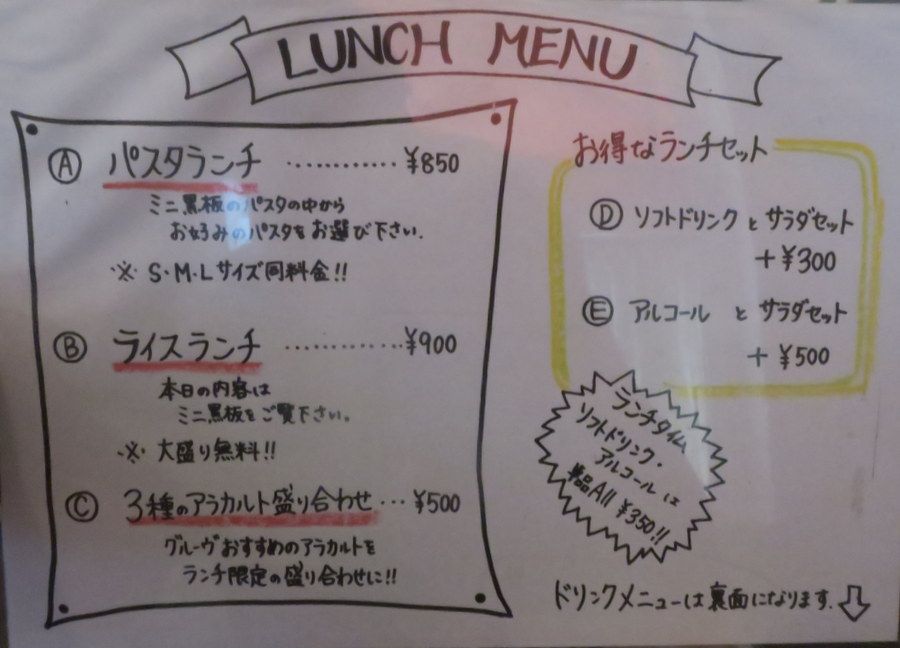 LUNCH MENU
Ⓐ パスタランチ ………… ¥850
ミニ黒板のパスタの中から
お好みのパスタをお選び下さい.
※ S・M・Lサイズ同料金!!
Ⓑ ライスランチ ………… ¥900
本日の内容は
ミニ黒板をご覧下さい。
※ 大盛り無料!!
Ⓒ 3種のアラカルト盛り合わせ … ¥500
グルーヴおすすめのアラカルトを
ランチ限定の盛り合わせに!!
お得なランチセット
Ⓓ ソフトドリンク と サラダセット
+¥300
Ⓔ アルコール と サラダセット
+ ¥500
ランチタイム
ソフトドリンク・
アルコールは
単品All ¥350!!
ドリンクメニューは裏面になります.